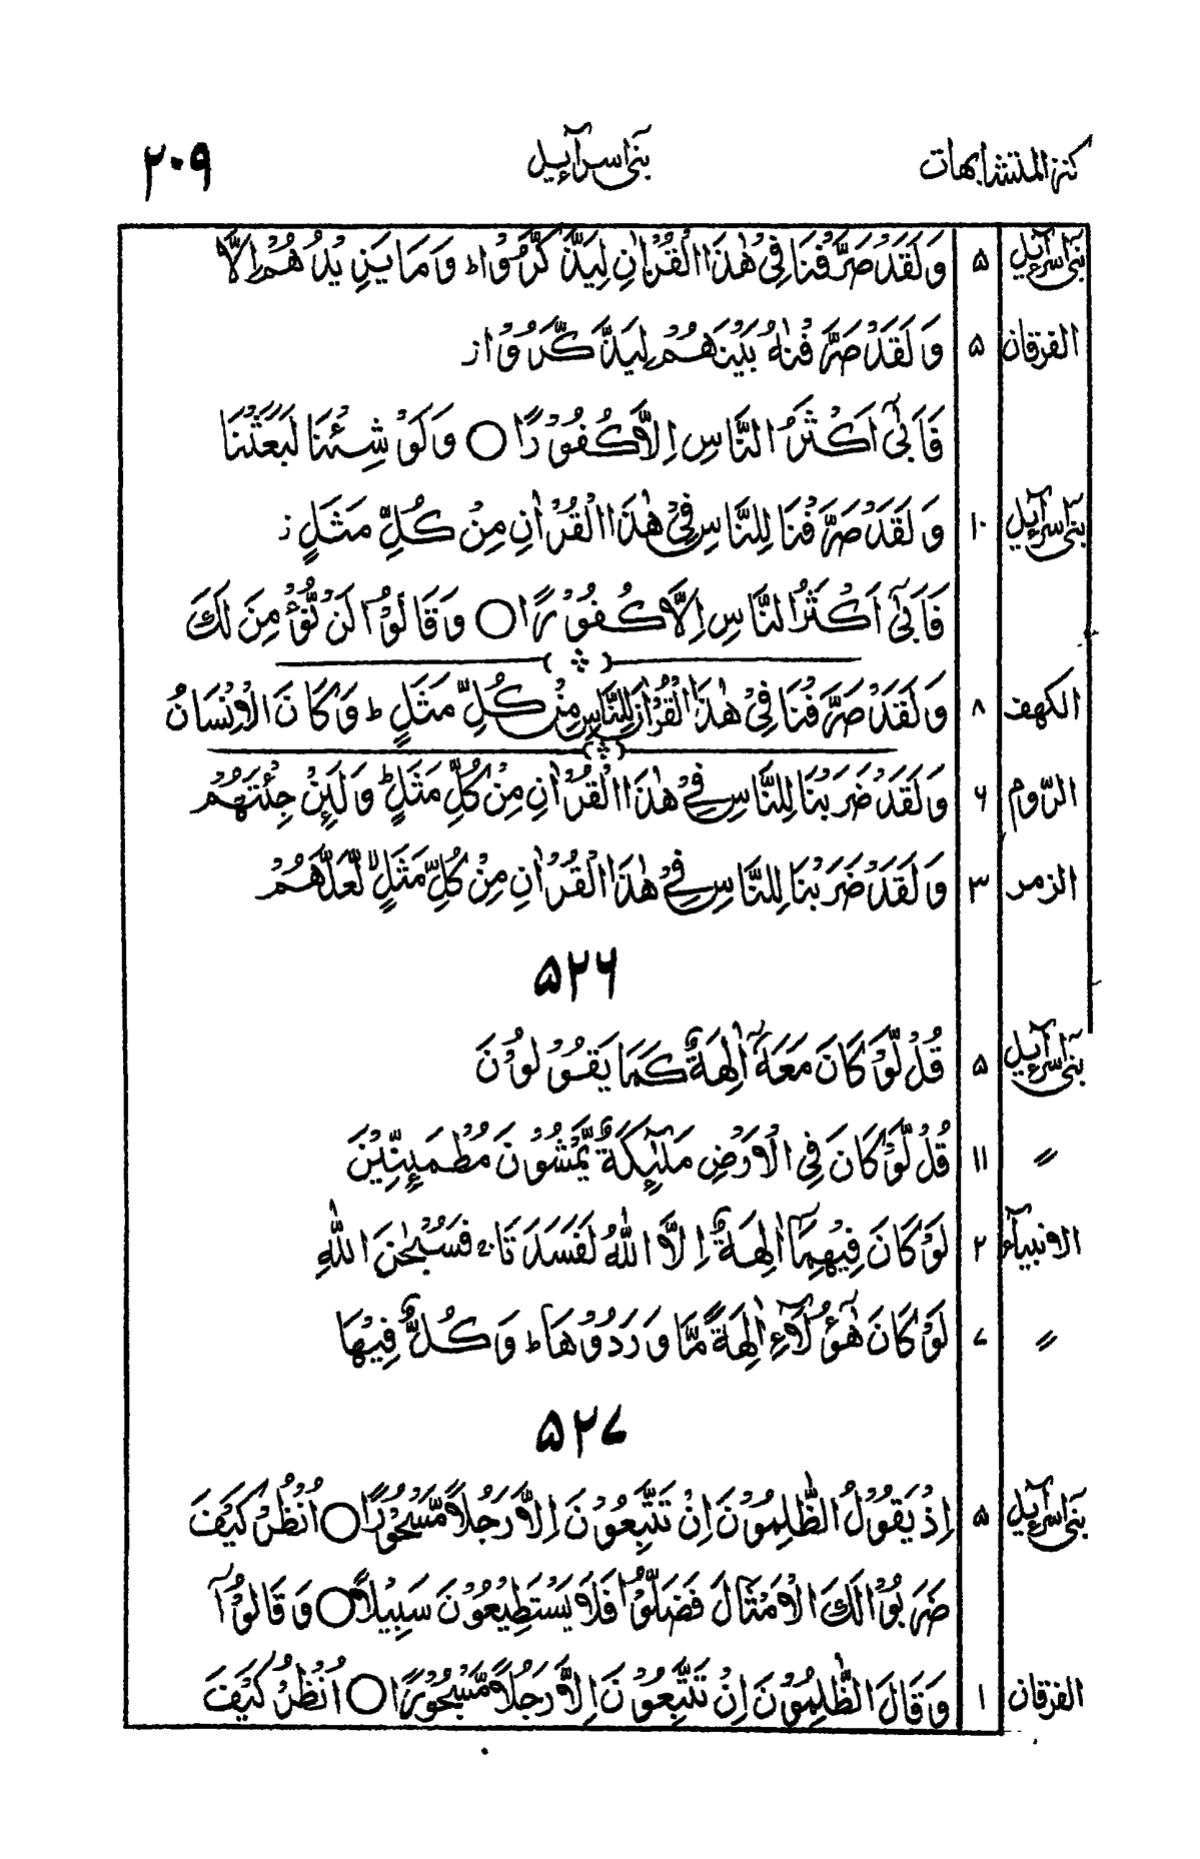 كنز المتشابهات بنی اسرآءیل ۲۰۹
بنی اسرآءیل ۵ وَلَقَدْ صَرَّفْنَا فِیْ هٰذَا الْقُرْاٰنِ لِیَذَّكَّرُوْا ؕ وَمَا یَزِیْدُهُمْ اِلَّا
الفرقان ۵ وَلَقَدْ صَرَّفْنٰهُ بَیْنَهُمْ لِیَذَّكَّرُوْا ز
فَاَبٰۤی اَكْثَرُ النَّاسِ اِلَّا كُفُوْرًا ○ وَلَوْ شِئْنَا لَبَعَثْنَا
بنی اسرآءیل ۱۰ وَلَقَدْ صَرَّفْنَا لِلنَّاسِ فِیْ هٰذَا الْقُرْاٰنِ مِنْ كُلِّ مَثَلٍ ز
فَاَبٰۤی اَكْثَرُ النَّاسِ اِلَّا كُفُوْرًا ○ وَقَالُوْا لَنْ نُّؤْمِنَ لَكَ
الكهف ۸ وَلَقَدْ صَرَّفْنَا فِیْ هٰذَا الْقُرْاٰنِ لِلنَّاسِ مِنْ كُلِّ مَثَلٍ ؕ وَكَانَ الْاِنْسَانُ
الرّوم ۶ وَلَقَدْ ضَرَبْنَا لِلنَّاسِ فِیْ هٰذَا الْقُرْاٰنِ مِنْ كُلِّ مَثَلٍ ؕ وَلَئِنْ جِئْتَهُمْ
الزمر ۳ وَلَقَدْ ضَرَبْنَا لِلنَّاسِ فِیْ هٰذَا الْقُرْاٰنِ مِنْ كُلِّ مَثَلٍ لَّعَلَّهُمْ
۵۲۶
بنی اسرآءیل ۵ قُلْ لَّوْ كَانَ مَعَهٗۤ اٰلِهَةٌ كَمَا یَقُوْلُوْنَ
〃 ۱۱ قُلْ لَّوْ كَانَ فِی الْاَرْضِ مَلٰٓئِكَةٌ یَّمْشُوْنَ مُطْمَئِنِّیْنَ
الانبیآء ۲ لَوْ كَانَ فِیْهِمَاۤ اٰلِهَةٌ اِلَّا اللّٰهُ لَفَسَدَتَا ۚ فَسُبْحٰنَ اللّٰهِ
〃 ۷ لَوْ كَانَ هٰۤؤُلَآءِ اٰلِهَةً مَّا وَرَدُوْهَا ؕ وَكُلٌّ فِیْهَا
۵۲۷
بنی اسرآءیل ۵ اِذْ یَقُوْلُ الظّٰلِمُوْنَ اِنْ تَتَّبِعُوْنَ اِلَّا رَجُلًا مَّسْحُوْرًا ○ اُنْظُرْ كَیْفَ
ضَرَبُوْا لَكَ الْاَمْثَالَ فَضَلُّوْا فَلَا یَسْتَطِیْعُوْنَ سَبِیْلًا ○ وَقَالُوْۤا
الفرقان ۱ وَقَالَ الظّٰلِمُوْنَ اِنْ تَتَّبِعُوْنَ اِلَّا رَجُلًا مَّسْحُوْرًا ○ اُنْظُرْ كَیْفَ